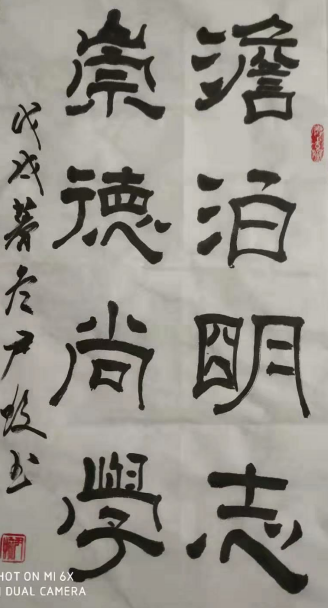 澹泊明志
崇德尚學
戊戌暮冬尹书
HOT ON MI 6X
DUAL CAMERA